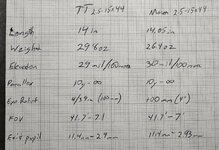 TT 2.5-15x44 Maven 2.5-15x44
Length 14 in 14.05 in
Weight 29.8oz 26.4oz
Elevation 29 mil/100 30 mil/100
Parallax 10y-∞ 10y-∞
Eye Relief (100mm) 100 mm (4")
FOV 41.7-7.1 41.7'-7'
Exit pupil 11.4mm-2.9mm 11.4mm-2.93mm